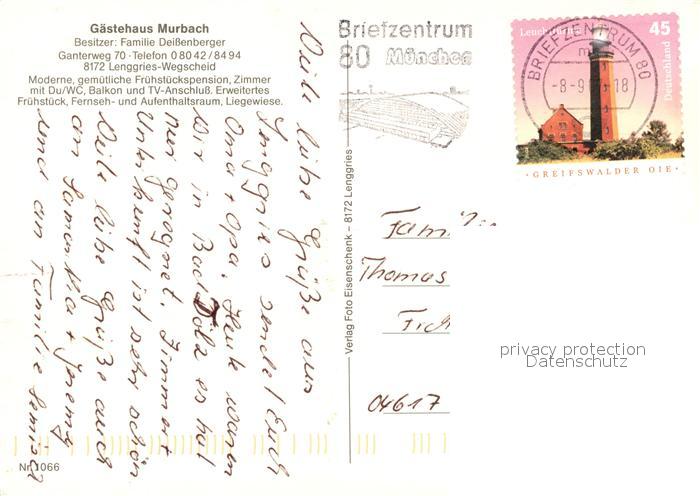 Gästehaus Murbach
Besitzer: Familie Deißenberger
Ganterweg 70 · Telefon 0 80 42 / 84 94
8172 Lenggries-Wegscheid
Moderne, gemütliche Frühstückspension, Zimmer
mit Du/WC, Balkon und TV-Anschluß. Erweitertes
Frühstück, Fernseh- und Aufenthaltsraum, Liegewiese.
Viele liebe Grüße aus
Lenggries sendet Euch
Oma + Opa. Heute waren
Wir in Bad Tölz es hat
nur geregnet. Zimmer +
Unterkunft ist sehr schön
Viele liebe Grüße auch
an Samantha + Jeremy
und an Familie
Nr. 1066
Verlag Foto Eisenschenk – 8172 Lenggries
Briefzentrum
80 München
BRIEFZENTRUM 80
Leuchttürme
45
Deutschland
GREIFSWALDER OIE
Thomas
04617
privacy protection
Datenschutz